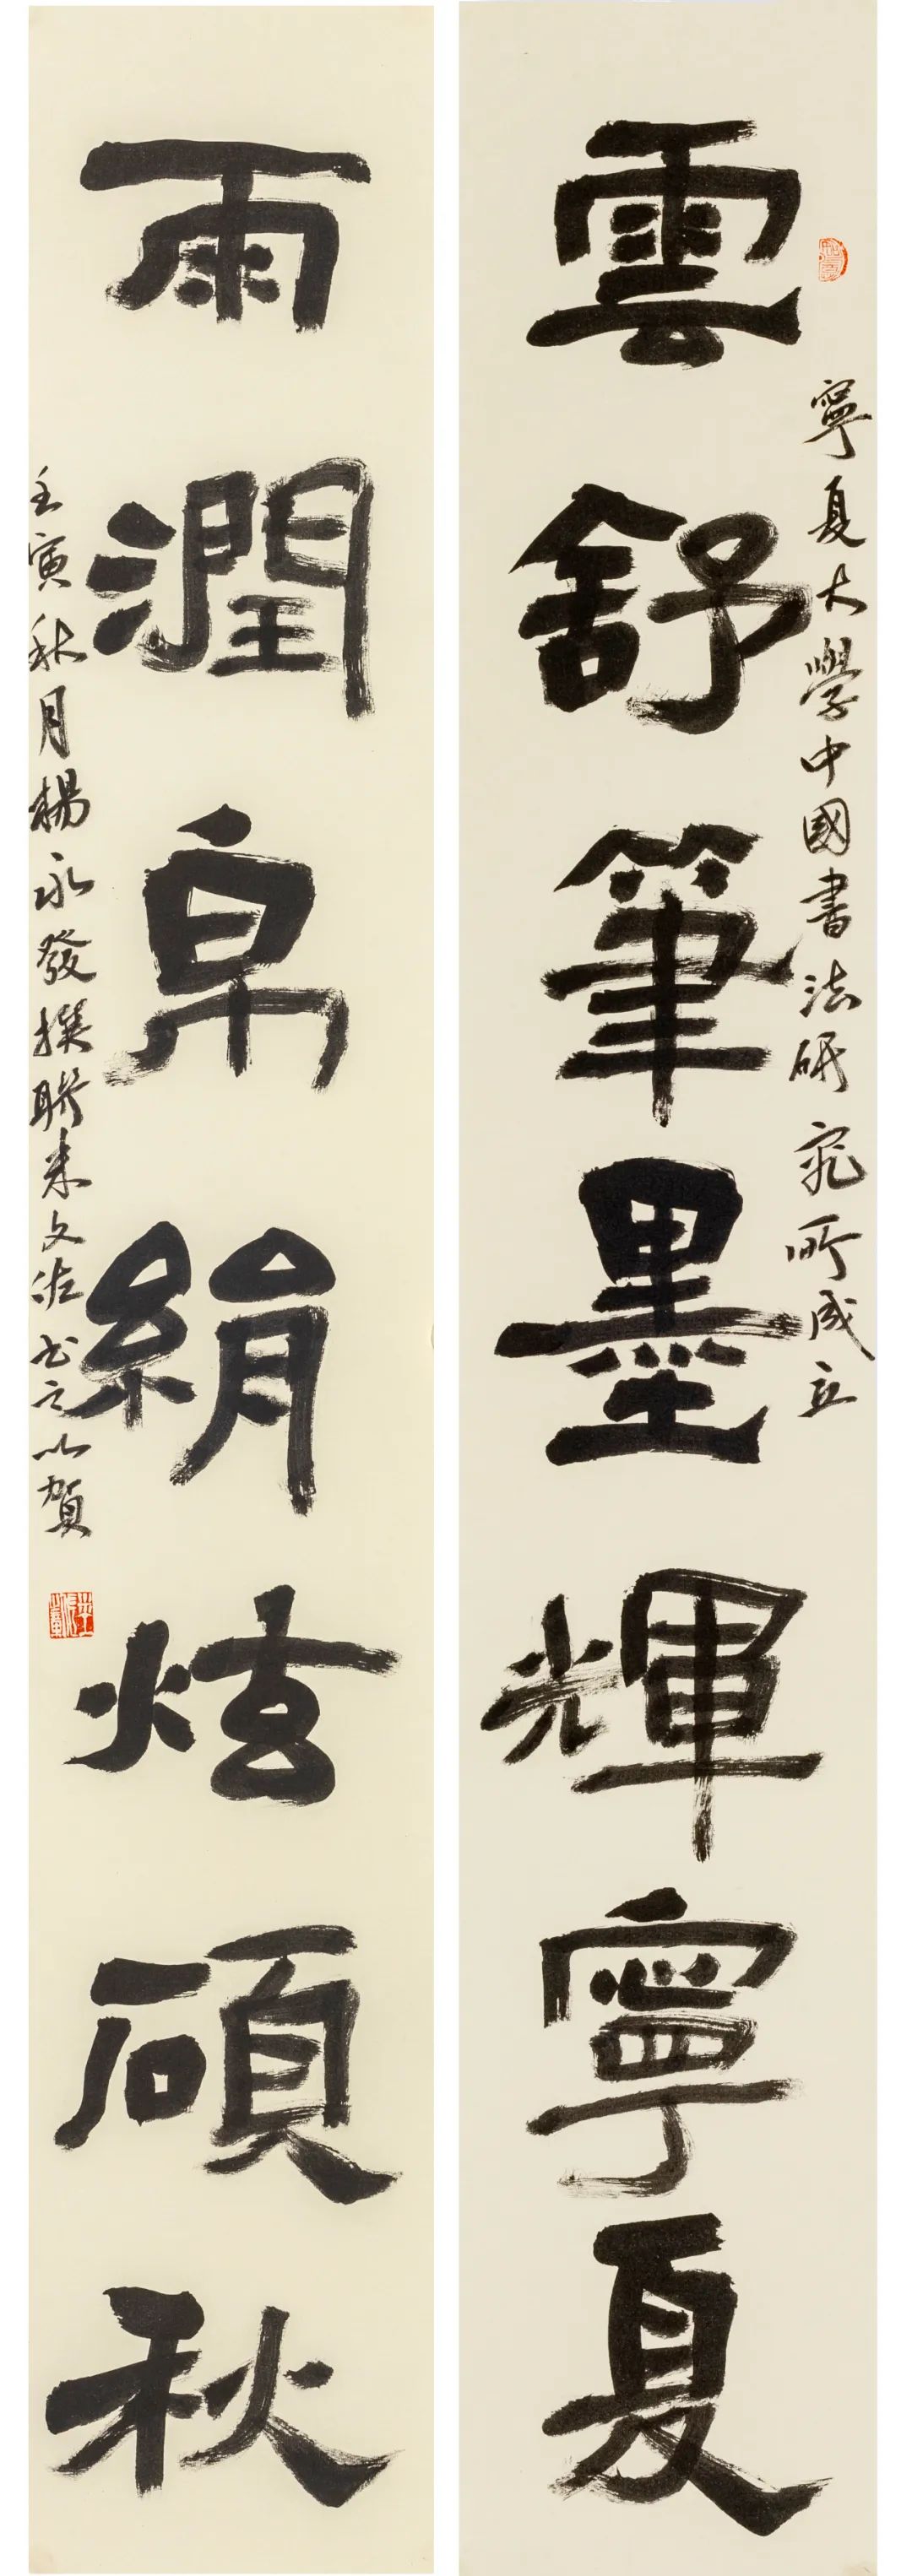 寧夏大學中國書法研究所成立
雲舒筆墨輝寧夏
雨潤帛絹炫碩秋
壬寅秋月楊永發撰聯米文佐书之以賀